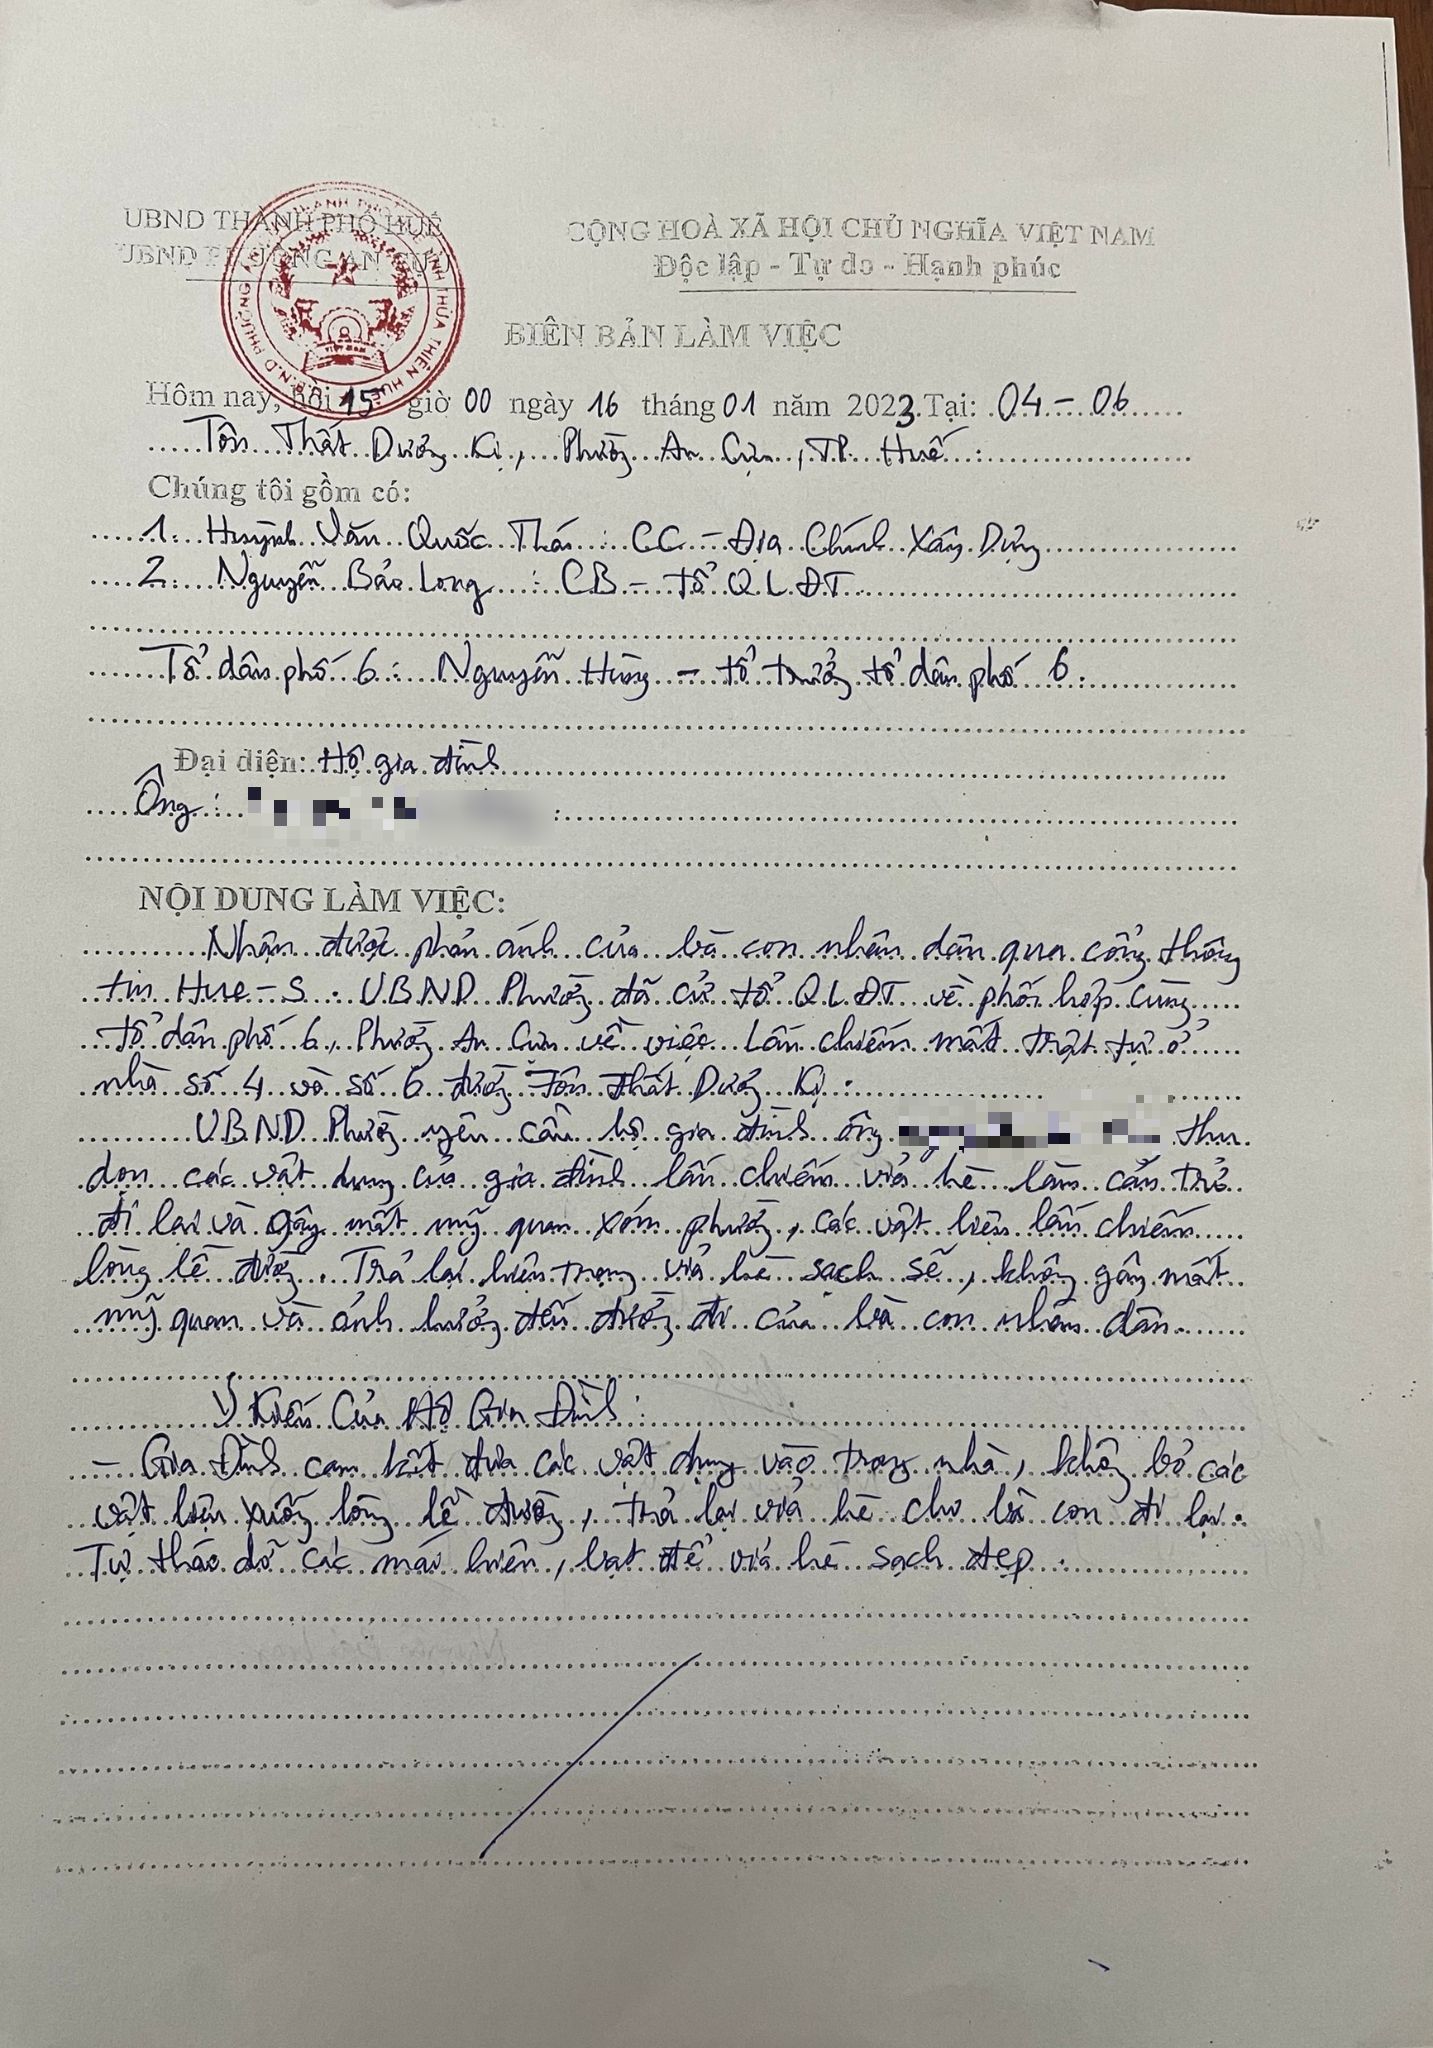 UBND THÀNH PHỐ HUẾ
UBND PHƯỜNG AN CỰU
CỘNG HOÀ XÃ HỘI CHỦ NGHĨA VIỆT NAM
Độc lập - Tự do - Hạnh phúc
BIÊN BẢN LÀM VIỆC
Hôm nay, hồi 15 giờ 00 ngày 16 tháng 01 năm 2023. Tại: 04 - 06
Tôn Thất Dương Kị, Phường An Cựu, TP. Huế.
Chúng tôi gồm có:
1. Huỳnh Văn Quốc Thái: CC - Địa Chính Xây Dựng
2. Nguyễn Bảo Long: CB - tổ QLĐT
Tổ dân phố 6: Nguyễn Hùng - tổ trưởng tổ dân phố 6.
Đại diện: Hộ gia đình
Ông:
NỘI DUNG LÀM VIỆC:
Nhận được phản ánh của bà con nhân dân qua cổng thông
tin Hue-S. UBND Phường đã cử tổ QLĐT về phối hợp cùng
tổ dân phố 6, Phường An Cựu về việc Lấn chiếm mất trật tự ở
nhà số 4 và số 6 đường Tôn thất Dương Kị.
UBND Phường yêu cầu hộ gia đình ông thu
dọn các vật dụng của gia đình lấn chiếm vỉa hè làm cản trở
đi lại và gây mất mỹ quan xóm phường, các vật liệu lấn chiếm
lòng lề đường. Trả lại hiện trạng vỉa hè sạch sẽ, không gây mất
mỹ quan và ảnh hưởng đến đường đi của bà con nhân dân.
Ý Kiến Của Hộ Gia Đình:
- Gia Đình cam kết đưa các vật dụng vào trong nhà, không bỏ các
vật liệu xuống lòng lề đường, trả lại vỉa hè cho bà con đi lại.
Tự tháo dỡ các mái hiên, bạt để vỉa hè sạch đẹp.